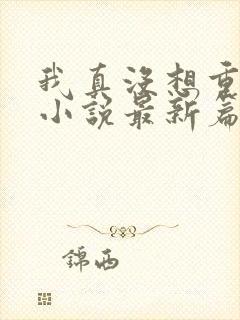 我真没想重
小说最新篇
锦西